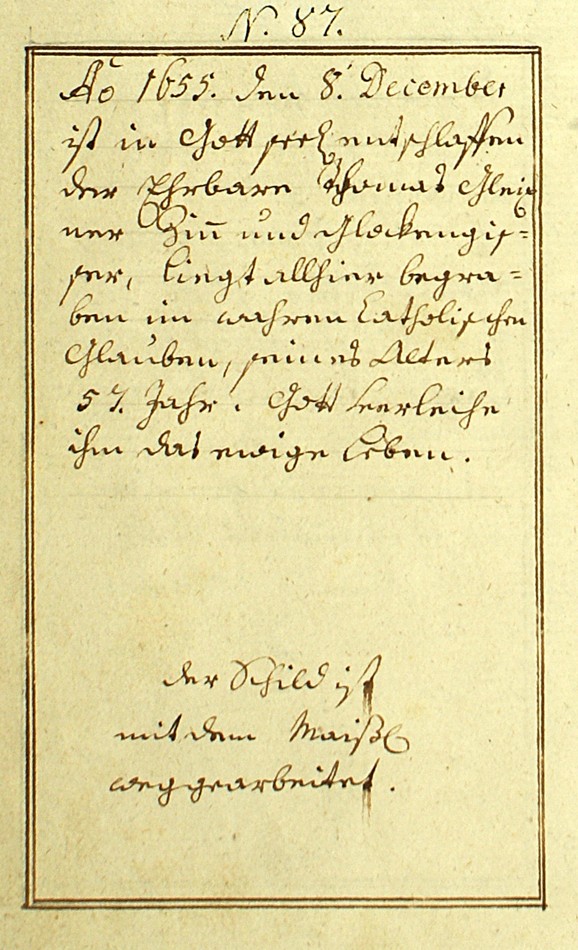 N. 87.
Ao 1655. den 8. December
ist in Gott seel: entschlaffen
der Ehrbare Thomas Gleix
ner Zin̄ und Glockengis=
ser, liegt allhier begra=
ben im wahren Catholischen
Glauben, seines Alters
57. Jahr. Gott verleihe
ihm das ewige Leben.
der Schild ist
mit dem Maißl
weggearbeitet.